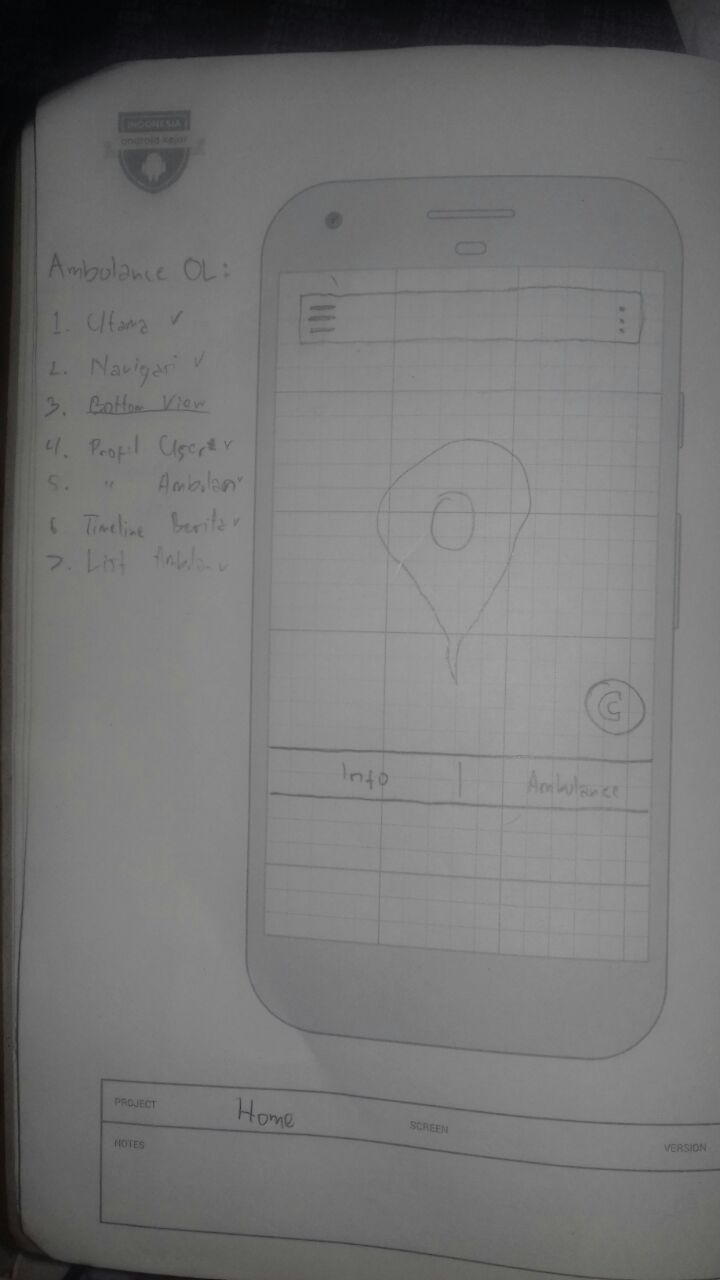 INDONESIA
android kejar
Ambulance OL:
1. Utama ✓
2. Navigasi ✓
3. Bottom View
4. Profil User ✓
5. " Ambulan ✓
6 Timeline Berita ✓
7. List Ambulan ✓
C
Info | Ambulance
PROJECT Home SCREEN VERSION
NOTES